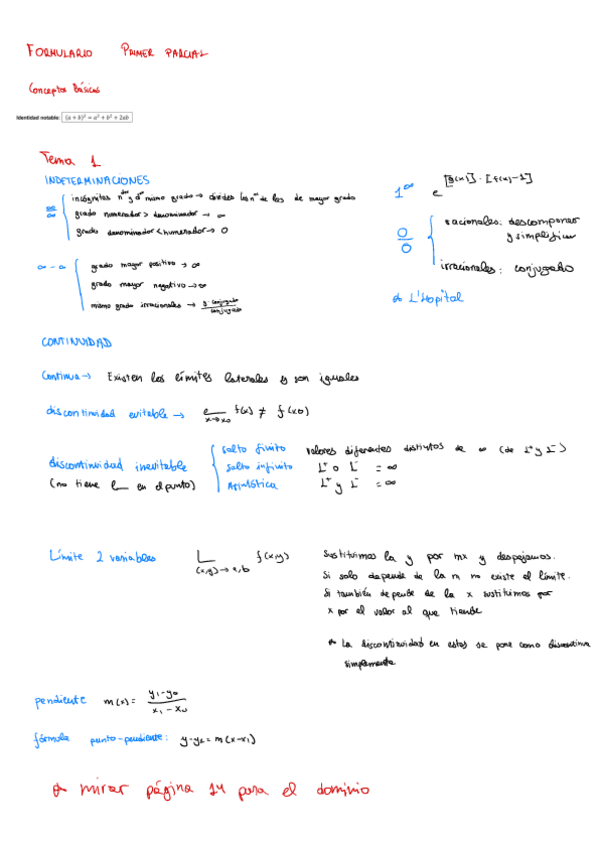 FORMULARIO PRIMER PARCIAL
Conceptos Básicos
Identidad notable: (a + b)² = a² + b² + 2ab
Tema 1
INDETERMINACIONES
∞/∞
incógnitas mismo grado → divides los de las de mayor grado
grado numerador > denominador → ∞
grado denominador < numerador → 0
∞ - ∞
grado mayor positivo → ∞
grado mayor negativo → ∞
mismo grado irracionales → conjugado/conjugado
1^∞ e^[g(x)]·[f(x)-1]
0/0
racionales: descomponer
y simplificar
irracionales: conjugado
* L'Hopital
CONTINUIDAD
Continua → Existen los límites laterales y son iguales
discontinuidad evitable → x→x0 f(x) ≠ f(x0)
discontinuidad inevitable
(no tiene L en el punto)
salto finito valores diferentes distintos de ∞ (de L⁺ y L⁻)
salto infinito L⁺ o L⁻ = ∞
Asintótica L⁺ y L⁻ = ∞
Límite 2 variables L (x,y)→a,b f(x,y)
Sustituimos la y por mx y despejamos.
Si solo depende de la m no existe el límite.
Si también depende de la x sustituimos por
x por el valor al que tiende
* La discontinuidad en estos se pone como
simplemente
pendiente m(x) = y₁-y₀ / x₁-x₀
fórmula punto-pendiente: y-y₁ = m(x-x₁)
* mirar página 14 para el dominio